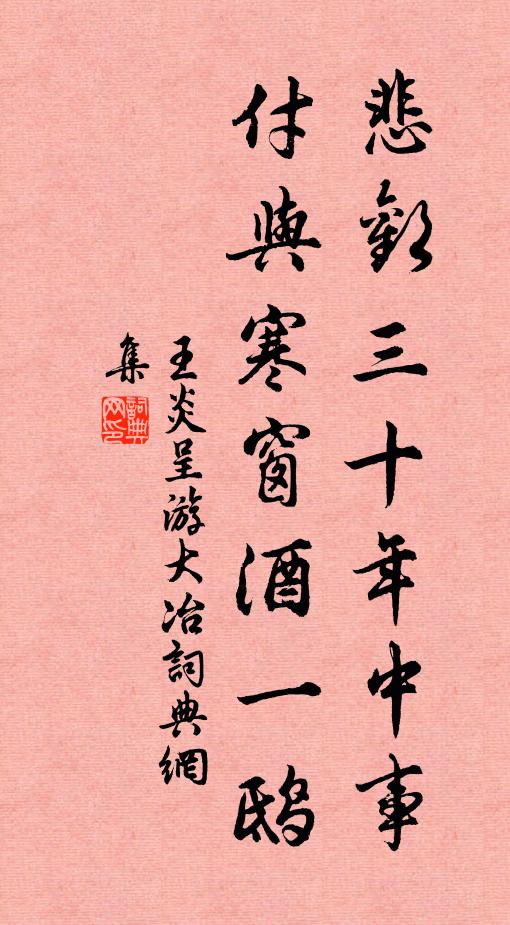 悲歡三十年中事
付與寒窗酒一鴟
王炎呈游大冶詞典網
集
詞典网印